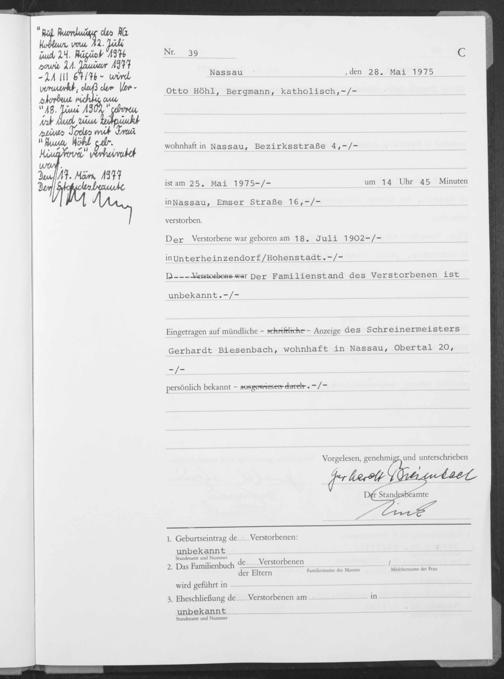 "Auf Anordnung des AG
Koblenz vom 12. Juli
und 24. August 1976
sowie 21. Januar 1977
- 21 III 67/76 - wird
vermerkt, daß der Ver-
storbene richtig am
"18. Juni 1902" geboren
ist und zum Zeitpunkt
seines Todes mit Frau
"Anna Höhl geb.
verheiratet
war.
Den 17. März 1977
Der Standesbeamte
Nr. 39 C
Nassau , den 28. Mai 1975
Otto Höhl, Bergmann, katholisch,-/-
wohnhaft in Nassau, Bezirksstraße 4,-/-
ist am 25. Mai 1975-/- um 14 Uhr 45 Minuten
in Nassau, Emser Straße 16,-/-
verstorben.
Der Verstorbene war geboren am 18. Juli 1902-/-
in Unterheinzendorf/Hohenstadt.-/-
D--- Verstorbene war Der Familienstand des Verstorbenen ist
unbekannt.-/-
Eingetragen auf mündliche - schriftliche - Anzeige des Schreinermeisters
Gerhardt Biesenbach, wohnhaft in Nassau, Obertal 20,
-/-
persönlich bekannt - ausgewiesen durch .-/-
Vorgelesen, genehmigt und unterschrieben
Gerhardt Biesenbach
Der Standesbeamte
1. Geburtseintrag de Verstorbenen:
unbekannt
Standesamt und Nummer
2. Das Familienbuch de Verstorbenen /
der Eltern Familienname des Mannes Mädchenname der Frau
wird geführt in
3. Eheschließung de Verstorbenen am in
unbekannt
Standesamt und Nummer